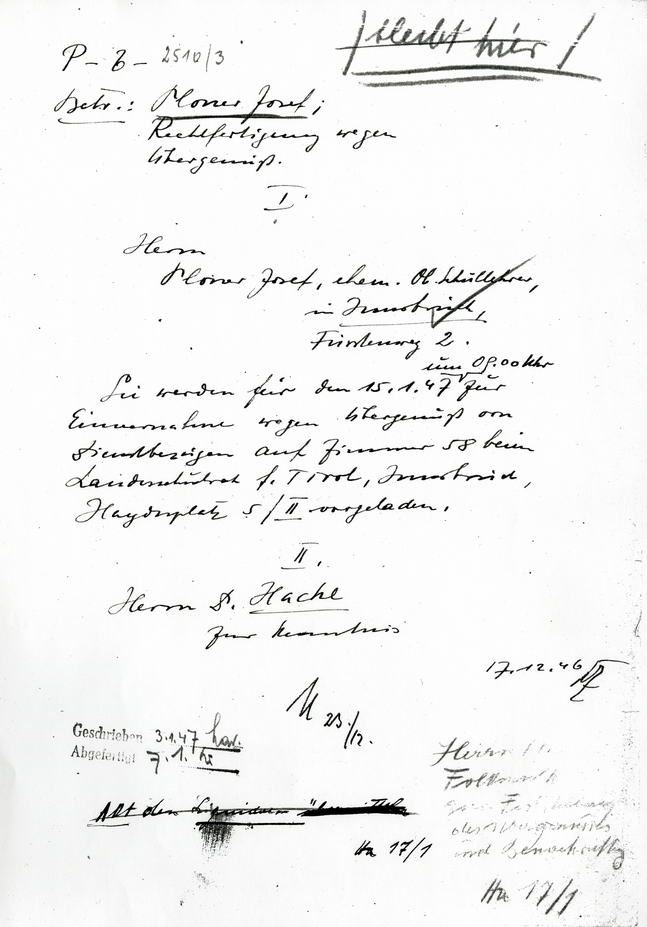 / bleibt hier /
P-6-2510/3
Betr.: Ploner Josef;
Rechtfertigung wegen
Übergenuß.
I.
Herrn
Ploner Josef, ehem. Ob. Schullehrer,
in Innsbruck,
Fürstenweg 2.
um 09.00 Uhr
Sie werden für den 15.1.47 zur
Einvernahme wegen Übergenuß von
Dienstbezügen auf Zimmer 58 beim
Landesschulrat f. Tirol, Innsbruck,
Haydnplatz 5/II vorgeladen.
II.
Herrn Dr. Hackl
zur Kenntnis
17.12.46
23/12.
Geschrieben 3.1.47
Abgefertigt 7.1.
Akt dem
Herrn
des Übergenusses
und Benachrichtig
Ha 17/1
Ha 17/1